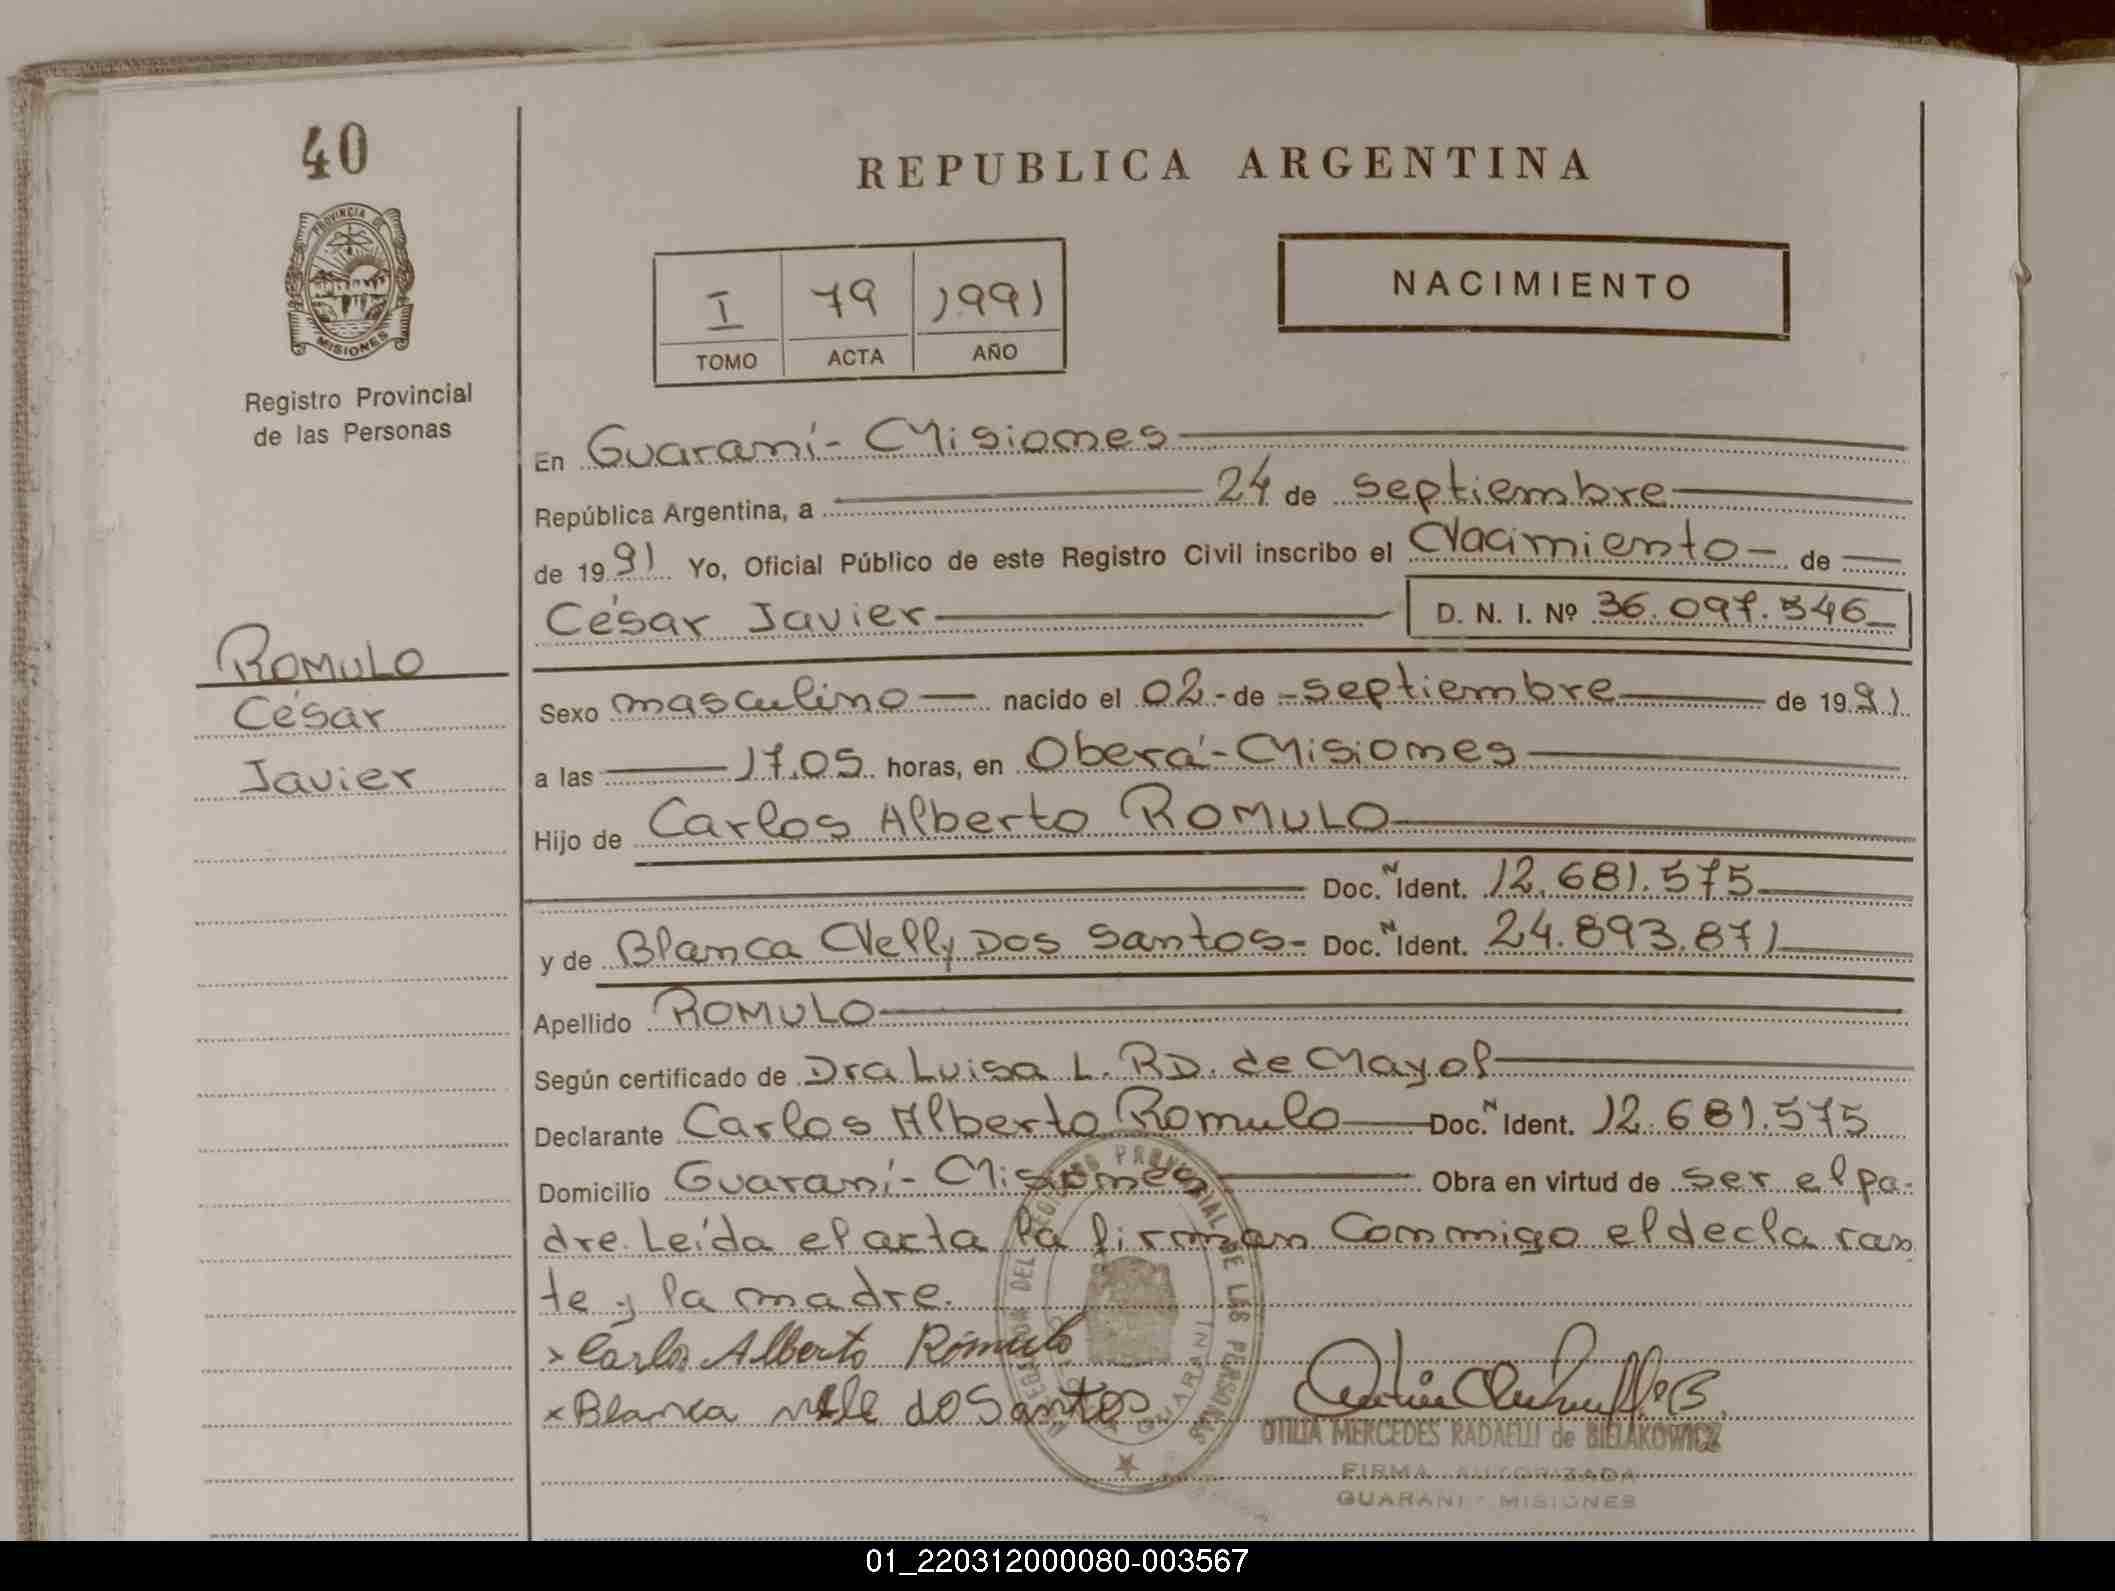 40
REPUBLICA ARGENTINA
PROVINCIA DE
MISIONES
NACIMIENTO
I 79 1991
TOMO ACTA AÑO
Registro Provincial
de las Personas
En Guaraní - Misiones
República Argentina, a 24 de septiembre
de 1991 Yo, Oficial Público de este Registro Civil inscribo el Nacimiento - de
César Javier D. N. I. Nº 36.097.546
ROMULO
César
Javier
Sexo masculino nacido el 02 - de - septiembre de 1991
a las 17.05 horas, en Oberá - Misiones
Hijo de Carlos Alberto ROMULO
Doc. N Ident. 12.681.575
y de Blanca Nelly DOS Santos - Doc. N Ident. 24.893.871
Apellido ROMULO
Según certificado de Dra Luisa L. RD. de Mayol
Declarante Carlos Alberto Romulo Doc. N Ident. 12.681.575
Domicilio Guaraní - Misiones Obra en virtud de ser el pa-
dre. Leída el acta la firman conmigo el declaran
te y la madre.
x Carlos Alberto Rómulo
x Blanca do Santos
OTILIA MERCEDES RADAELLI de BIELAKOWICZ
FIRMA AUTORIZADA
GUARANI - MISIONES
01_220312000080-003567